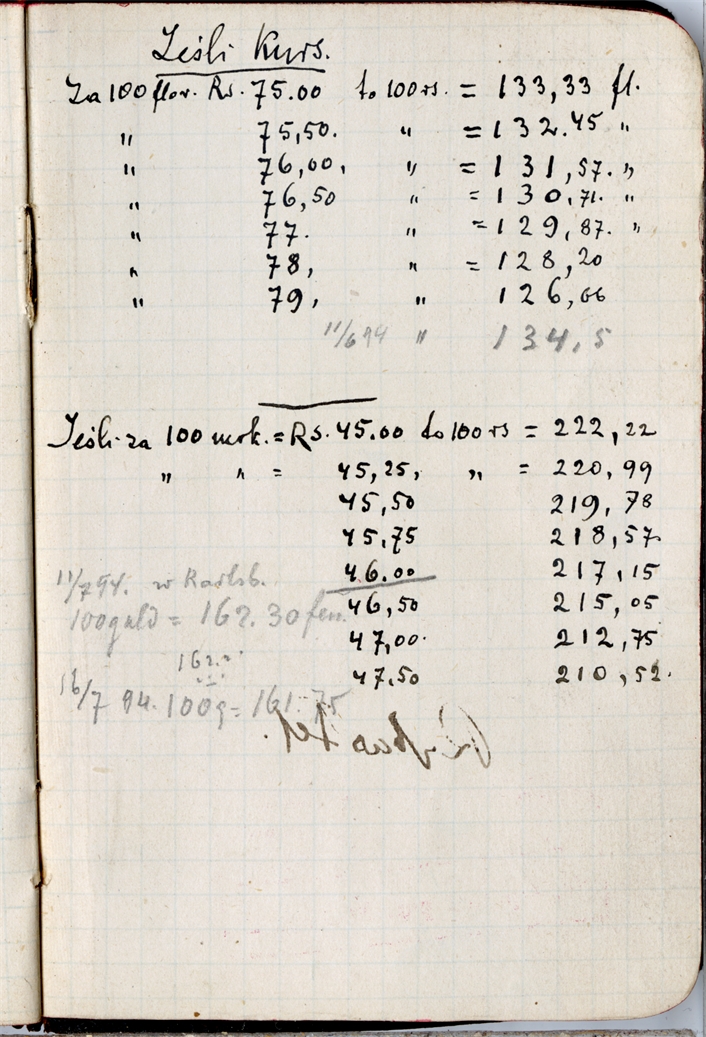 Jeśli Kurs.
Za 100 flor. Rs. 75.00 to 100 rs. = 133,33 fl.
" 75,50. " = 132.45 "
" 76,00, " = 131,57. "
" 76,50 " = 130,71. "
" 77. " = 129,87. "
" 78, " = 128,20
" 79, " 126,66
11/6 94 " 134,5
Jeśli za 100 mrk. = Rs. 45.00 to 100 rs = 222,22
" " = 45,25, " = 220,99
45,50 219,78
45,75 218,57
46.00 217,15
46,50 215,05
47,00. 212,75
47.50 210,52.
11/7 94. w Karlsb.
100 guld = 162.30 fen.
162.
16/7 94. 100 g = 161.75